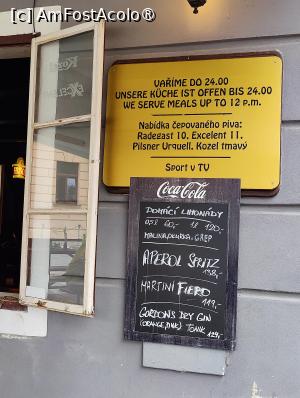 [c] AmFostAcolo®
Kozel
EXCELENT
VAŘÍME DO 24.00
UNSERE KÜCHE IST OFFEN BIS 24.00
WE SERVE MEALS UP TO 12 p.m.
Nabídka čepovaného piva:
Radegast 10. Excelent 11.
Pilsner Urquell. Kozel tmavý
Sport v TV
Coca-Cola
DOMÁCÍ LIMONÁDY
0,5l 60,- 1l 120,-
MALINA, OKURKA, GREP
APEROL SPRITZ
138,-
MARTINI FIERO
119,-
GORDONS DRY GIN
(ORANGE, PINK) TONIK 129,-